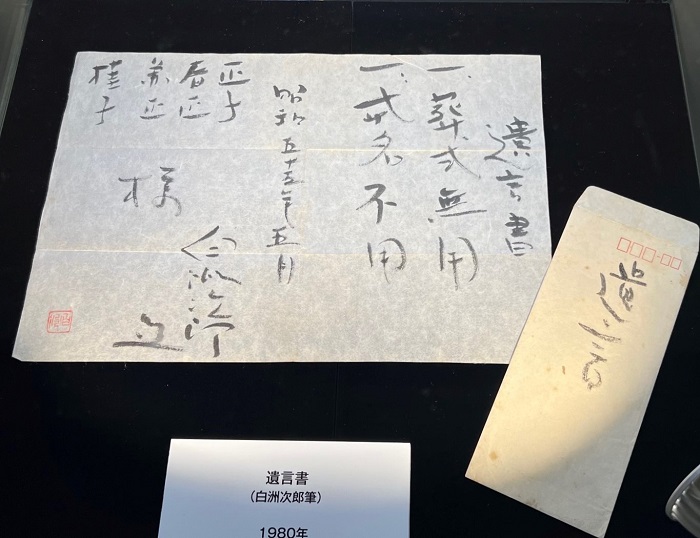 遺言書
一、葬式無用
一、戒名不用
昭和五十五年五月
正子
春正
兼正
桂子
様
白洲次郎
遺言書
(白洲次郎筆)
1980年